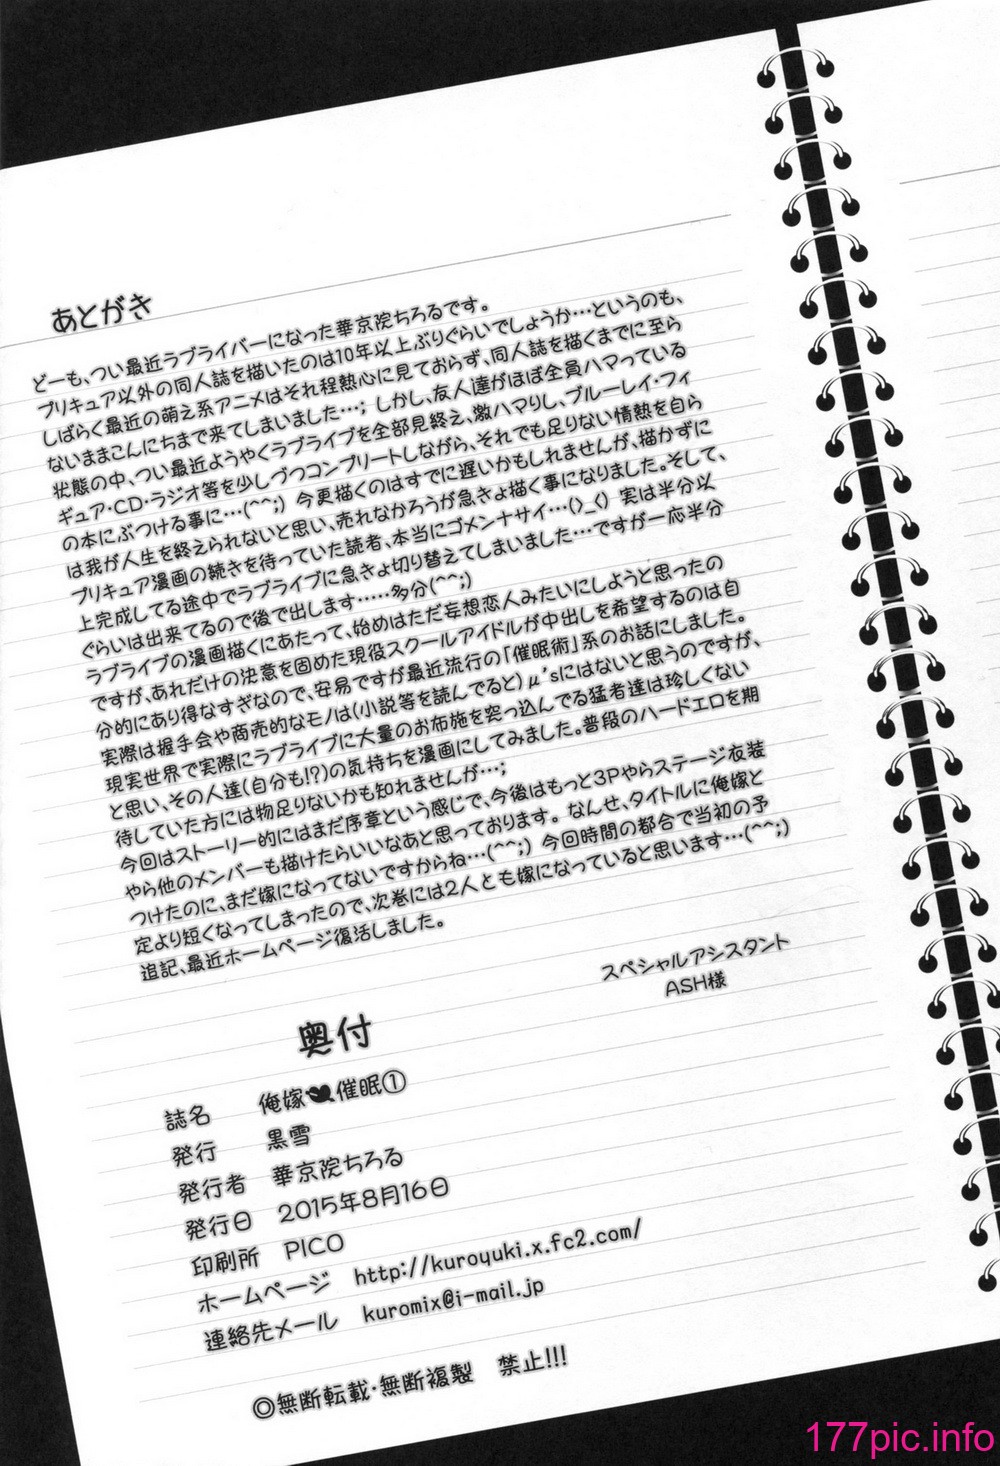 あとがき
どーも、つい最近ラブライバーになった華京院ちろるです。
プリキュア以外の同人誌を描いたのは10年以上ぶりぐらいでしょうか…というのも、
しばらく最近の萌え系アニメはそれ程熱心に見ておらず、同人誌を描くまでに至ら
ないままこんにちまで来てしまいました…; しかし、友人達がほぼ全員ハマっている
状態の中、つい最近ようやくラブライブを全部見終え、激ハマりし、ブルーレイ・フィ
ギュア・CD・ラジオ等を少しづつコンプリートしながら、それでも足りない情熱を自ら
の本にぶつける事に…(^^;) 今更描くのはすでに遅いかもしれませんが、描かずに
は我が人生を終えられないと思い、売れなかろうが急きょ描く事になりました。そして、
プリキュア漫画の続きを待っていた読者、本当にゴメンナサイ…(>_<) 実は半分以
上完成してる途中でラブライブに急きょ切り替えてしまいました…ですが一応半分
ぐらいは出来てるので後で出します……多分(^^;)
ラブライブの漫画描くにあたって、始めはただ妄想恋人みたいにしようと思ったの
ですが、あれだけの決意を固めた現役スクールアイドルが中出しを希望するのは自
分的にあり得なすぎなので、安易ですが最近流行の「催眠術」系のお話にしました。
実際は握手会や商売的なモノは(小説等を読んでると)μ'sにはないと思うのですが、
現実世界で実際にラブライブに大量のお布施を突っ込んでる猛者達は珍しくない
と思い、その人達(自分も!?)の気持ちを漫画にしてみました。普段のハードエロを期
待していた方には物足りないかも知れませんが…;
今回はストーリー的にはまだ序章という感じで、今後はもっと3Pやらステージ衣装
やら他のメンバーも描けたらいいなあと思っております。なんせ、タイトルに俺嫁と
つけたのに、まだ嫁になってないですからね…(^^;) 今回時間の都合で当初の予
定より短くなってしまったので、次巻には2人とも嫁になっていると思います…(^^;)
追記、最近ホームページ復活しました。
スペシャルアシスタント
ASH様
奥付
誌名 俺嫁催眠①
発行 黒雪
発行者 華京院ちろる
発行日 2015年8月16日
印刷所 PICO
ホームページ http://kuroyuki.x.fc2.com/
連絡先メール kuromix@i-mail.jp
◎無断転載・無断複製 禁止!!!
177pic.info